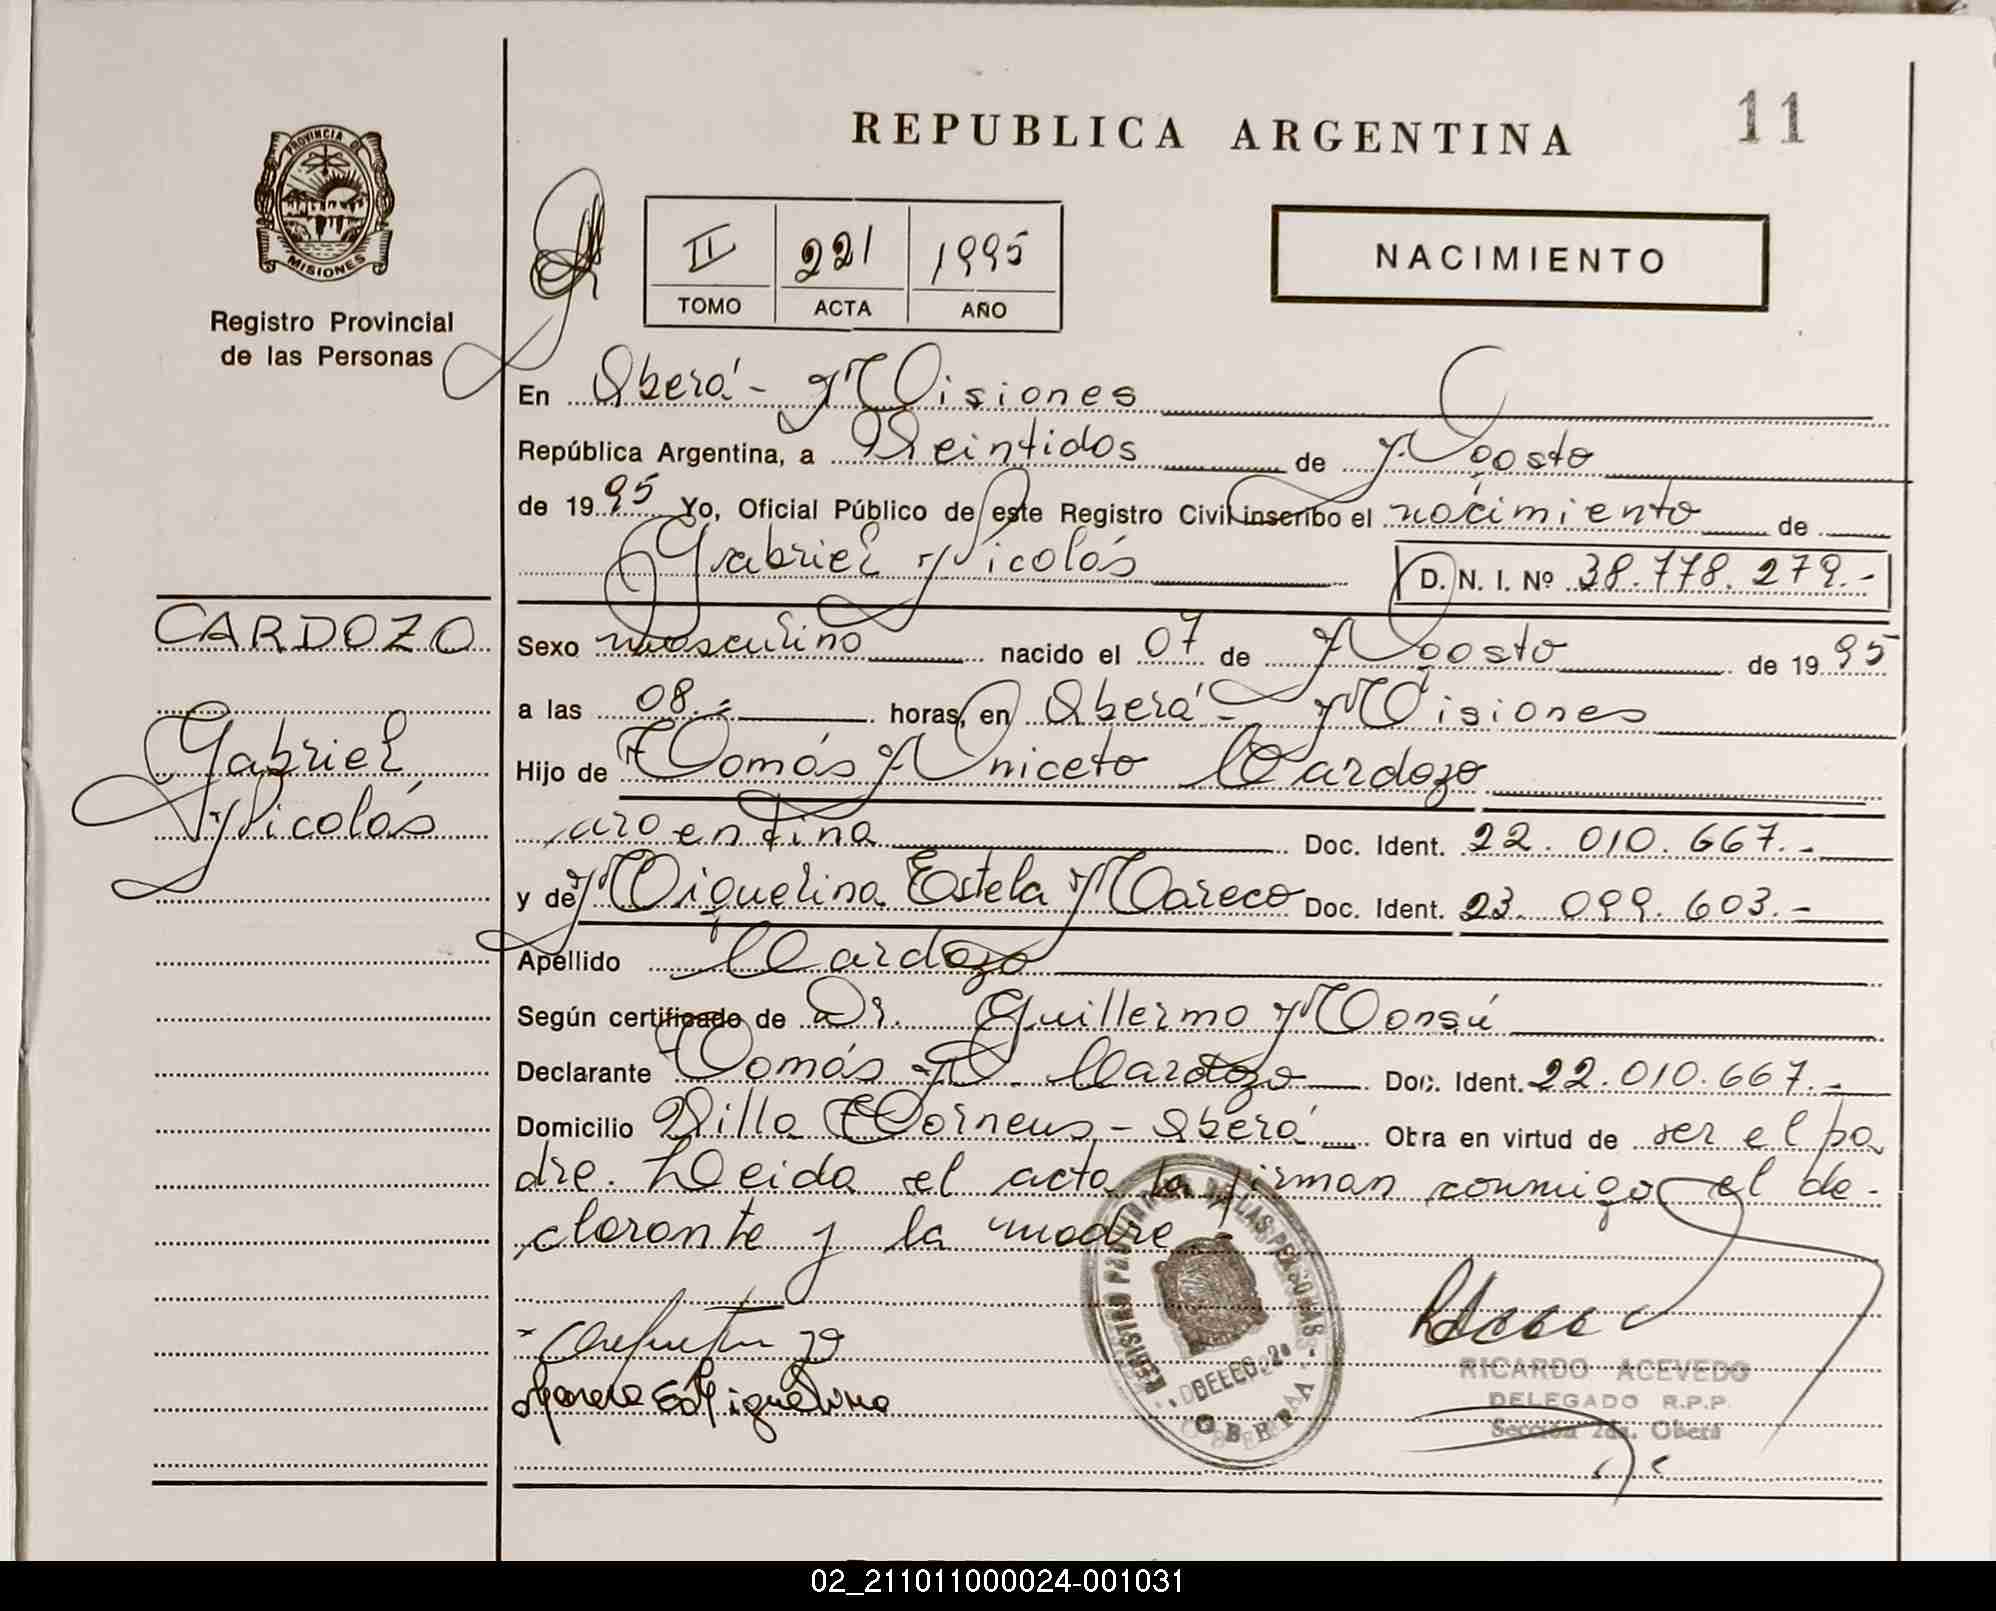 REPUBLICA ARGENTINA
11
PROVINCIA DE
MISIONES
Registro Provincial
de las Personas
II 221 1995
TOMO ACTA AÑO
NACIMIENTO
En Oberá - Misiones
República Argentina, a Veintidos de Agosto
de 1995 Yo, Oficial Público de este Registro Civil inscribo el nacimiento de
Gabriel Nicolás D. N. I. Nº 38.778.279.-
CARDOZO
Gabriel
Nicolás
Sexo masculino nacido el 07 de Agosto de 1995
a las 08.- horas, en Oberá - Misiones
Hijo de Tomás Aniceto Cardozo
argentina Doc. Ident. 22.010.667.-
y de Miguelina Estela Mareco Doc. Ident. 23.099.603.-
Apellido Cardozo
Según certificado de Dr. Guillermo Monsú
Declarante Tomás A. Cardozo Doc. Ident. 22.010.667.-
Domicilio Villa Torneus - Oberá Obra en virtud de ser el pa
dre. Leida el acta la firman conmigo el de-
clarante y la madre.-
Mareco E. Miguelina
REGISTRO PROVINCIAL DE LAS PERSONAS
DELEG. 2ª
OBERA
RICARDO ACEVEDO
DELEGADO R.P.P.
Sección 2da. Oberá
02_211011000024-001031